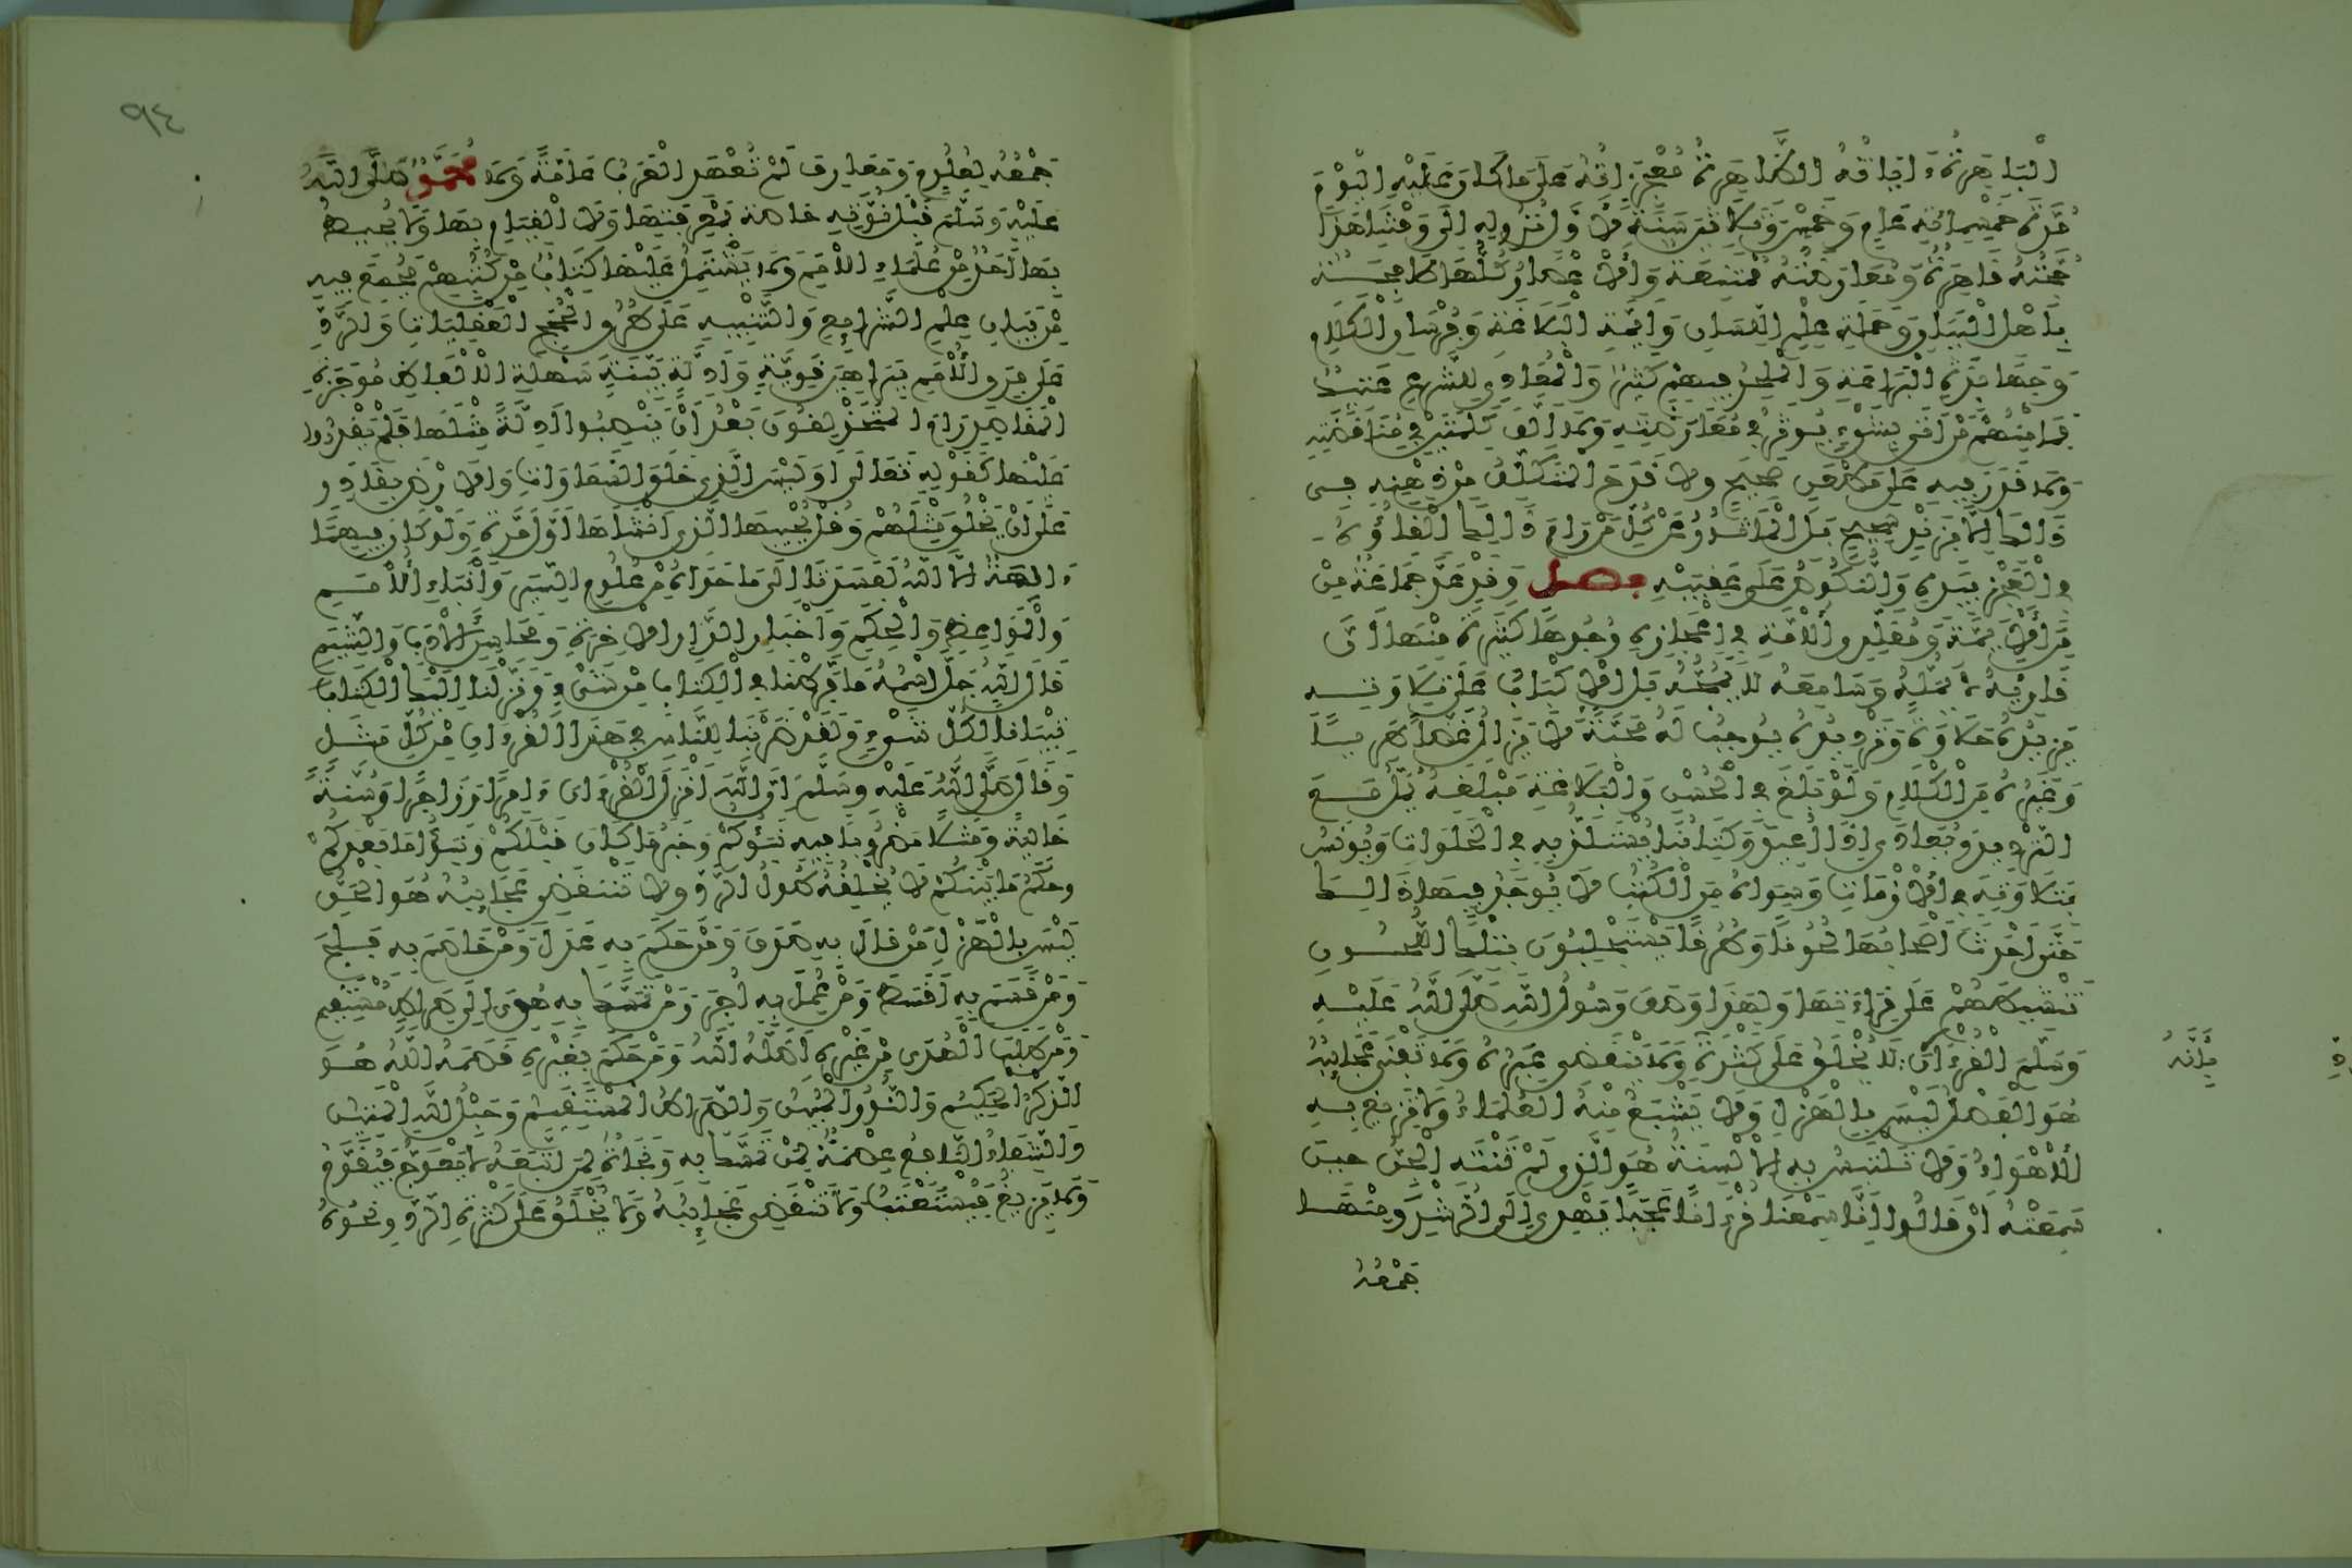 الْبَاهِرَةُ ءَايَاتُهُ الظَّاهِرَةُ مُعْجِزَاتُهُ عَلَى مَا كَانَ عَلَيْهِ الْيَوْمَ
مُدَّةَ خَمْسِمِائَةِ عَامٍ وَخَمْسٍ وَثَلَاثِينَ سَنَةً لِأَوَّلِ نُزُولِهِ إِلَى وَقْتِنَا هَذَا
حُجَّتُهُ قَاهِرَةٌ وَمُعَارَضَتُهُ مُمْتَنِعَةٌ وَالْأَعْصَارُ كُلُّهَا طَافِحَةٌ
بِأَهْلِ الْبَيَانِ وَحَمَلَةِ عِلْمِ اللِّسَانِ وَأَئِمَّةِ الْبَلَاغَةِ وَفُرْسَانِ الْكَلَامِ
وَجَهَابِذَةِ الْبَرَاعَةِ وَالْمُلْحِدُ فِيهِمْ كَثِيرٌ وَالْمُعَادِي لِلشَّرْعِ عَتِيدٌ
فَمَا مِنْهُمْ مَنْ أَتَى بِشَيْءٍ يُوثَرُ فِي مُعَارَضَتِهِ وَلَا أَلَّفَ كَلِمَتَيْنِ فِي مُنَاقَضَتِهِ
وَلَا قَدَرَ فِيهِ عَلَى مَطْعَنٍ صَحِيحٍ وَلَا قَدَحَ الْمُتَكَلِّفُ مِنْ ذِهْنِهِ فِي
ذَالِكَ إِلَّا بِزَنْدٍ شَحِيحٍ بَلِ الْمَأْثُورُ عَنْ كُلِّ مَنْ رَامَ ذَالِكَ إِلْقَاؤُهُ
فِي الْعَجْزِ بِيَدَيْهِ وَالنُّكُوصُ عَلَى عَقِبَيْهِ فصل وَقَدْ عَدَّ جَمَاعَةٌ مِنَ
الْأَئِمَّةِ وَمُقَلِّدِي الْأُمَّةِ فِي إِعْجَازِهِ وُجُوهًا كَثِيرَةً مِنْهَا أَنَّ
قَارِئَهُ لَا يَمَلُّهُ وَسَامِعَهُ لَا يَمُجُّهُ بَلِ الْإِكْبَابُ عَلَى تِلَاوَتِهِ
يَزِيدُهُ حَلَاوَةً وَتَرْدِيدُهُ يُوجِبُ لَهُ مَحَبَّةً لَا يَزَالُ غَضًّا طَرِيًّا
وَغَيْرُهُ مِنَ الْكَلَامِ وَلَوْ بَلَغَ فِي الْحُسْنِ وَالْبَلَاغَةِ مَبْلَغَهُ يُمَلُّ مَعَ
التَّرْدِيدِ وَيُعَادَى إِذَا أُعِيدَ وَكِتَابُنَا يُسْتَلَذُّ بِهِ فِي الْخَلَوَاتِ وَيُونَسُ
بِتِلَاوَتِهِ فِي الْأَزَمَاتِ وَسِوَاهُ مِنَ الْكُتُبِ لَا يُوجَدُ فِيهَا ذَالِكَ
حَتَّى أَحْدَثَ أَصْحَابُهَا لُحُونًا وَطُرُقًا يَسْتَجْلِبُونَ بِتِلْكَ اللُّحُونِ
تَنْشِيطَهُمْ عَلَى قِرَاءَتِهَا وَلِهَذَا وَصَفَ رَسُولُ اللَّهِ صَلَّى اللَّهُ عَلَيْهِ
وَسَلَّمَ الْقُرْءَانَ لَا يَخْلَقُ عَلَى كَثْرَةِ وَلَا تَنْقَضِي عِبَرُهُ وَلَا تَفْنَى عَجَائِبُهُ
بِأَنَّهُ
هُوَ الْفَصْلُ لَيْسَ بِالْهَزْلِ وَلَا يَشْبَعُ مِنْهُ الْعُلَمَاءُ وَلَا تَزِيغُ بِهِ
الْأَهْوَاءُ وَلَا تَلْتَبِسُ بِهِ الْأَلْسِنَةُ هُوَ الَّذِي لَمْ تَنْتَهِ الْجِنُّ حِينَ
سَمِعَتْهُ أَنْ قَالُوا إِنَّا سَمِعْنَا قُرْءَانًا عَجَبًا يَهْدِي إِلَى الرُّشْدِ وَمِنْهَا
جَمْعُهُ
٩٤
جَمْعُهُ لِعُلُومٍ وَمَعَارِفَ لَمْ تَعْهَدِ الْعَرَبُ عَامَّةً وَلَا مُحَمَّدٌ صَلَّى اللَّهُ
عَلَيْهِ وَسَلَّمَ قَبْلَ نُبُوَّتِهِ خَاصَّةً بِمَعْرِفَتِهَا وَلَا الْقِيَامِ بِهَا وَلَا يُحِيطُ
بِهَا أَحَدٌ مِنْ عُلَمَاءِ الْأُمَمِ وَلَا يَشْتَمِلُ عَلَيْهَا كِتَابٌ مِنْ كُتُبِهِمْ فَجُمِعَ فِيهِ
مِنْ بَيَانِ عِلْمِ الشَّرَائِعِ وَالتَّنْبِيهِ عَلَى طُرُقِ الْحُجَجِ الْعَقْلِيَّاتِ وَالرَّدِّ
عَلَى فِرَقِ الْأُمَمِ بِبَرَاهِينَ قَوِيَّةٍ وَأَدِلَّةٍ بَيِّنَةٍ سَهْلَةِ الْأَلْفَاظِ مُوجَزَةِ
الْمَقَاصِدِ رَامَ الْمُتَحَذْلِقُونَ بَعْدُ أَنْ يَنْصِبُوا أَدِلَّةً مِثْلَهَا فَلَمْ يَقْدِرُوا
عَلَيْهَا كَقَوْلِهِ تَعَالَى أَوَلَيْسَ الَّذِي خَلَقَ السَّمَاوَاتِ وَالْأَرْضَ بِقَادِرٍ
عَلَى أَنْ يَخْلُقَ مِثْلَهُمْ وَقُلْ يُحْيِيهَا الَّذِي أَنْشَأَهَا أَوَّلَ مَرَّةٍ وَلَوْ كَانَ فِيهِمَا
ءَالِهَةٌ إِلَّا اللَّهُ لَفَسَدَتَا إِلَى مَا حَوَاهُ مِنْ عُلُومِ السِّيَرِ وَأَنْبَاءِ الْأُمَمِ
وَالْمَوَاعِظِ وَالْحِكَمِ وَأَخْبَارِ الدَّارِ الْآخِرَةِ وَمَحَاسِنِ الْآدَابِ وَالشِّيَمِ
قَالَ اللَّهُ جَلَّ اسْمُهُ مَا فَرَّطْنَا فِي الْكِتَابِ مِنْ شَيْءٍ وَنَزَّلْنَا إِلَيْكَ الْكِتَابَ
تِبْيَانًا لِكُلِّ شَيْءٍ وَلَقَدْ ضَرَبْنَا لِلنَّاسِ فِي هَذَا الْقُرْءَانِ مِنْ كُلِّ مَثَلٍ
وَقَالَ صَلَّى اللَّهُ عَلَيْهِ وَسَلَّمَ إِنَّ اللَّهَ أَنْزَلَ الْقُرْءَانَ ءَامِرًا وَزَاجِرًا وَسُنَّةً
خَالِيَةً وَمَثَلًا مَضْرُوبًا فِيهِ نَبَؤُكُمْ وَخَبَرُ مَا كَانَ قَبْلَكُمْ وَنَبَأُ مَا بَعْدَكُمْ
وَحُكْمُ مَا بَيْنَكُمْ لَا يُخْلِقُهُ طُولُ الرَّدِّ وَلَا تَنْقَضِي عَجَائِبُهُ هُوَ الْحَقُّ
لَيْسَ بِالْهَزْلِ مَنْ قَالَ بِهِ صَدَقَ وَمَنْ حَكَمَ بِهِ عَدَلَ وَمَنْ خَاصَمَ بِهِ فَلَجَ
وَمَنْ قَسَمَ بِهِ أَقْسَطَ وَمَنْ عَمِلَ بِهِ أُجِرَ وَمَنْ تَمَسَّكَ بِهِ هُدِيَ إِلَى صِرَاطٍ مُسْتَقِيمٍ
وَمَنْ طَلَبَ الْهُدَى مِنْ غَيْرِهِ أَضَلَّهُ اللَّهُ وَمَنْ حَكَمَ بِغَيْرِهِ قَصَمَهُ اللَّهُ هُوَ
الذِّكْرُ الْحَكِيمُ وَالنُّورُ الْمُبِينُ وَالصِّرَاطُ الْمُسْتَقِيمُ وَحَبْلُ اللَّهِ الْمَتِينُ
وَالشِّفَاءُ النَّافِعُ عِصْمَةٌ لِمَنْ تَمَسَّكَ بِهِ وَنَجَاةٌ لِمَنِ اتَّبَعَهُ لَا يَعْوَجُّ فَيُقَوَّمُ
وَلَا يَزِيغُ فَيُسْتَعْتَبُ وَلَا تَنْقَضِي عَجَائِبُهُ وَلَا يَخْلَقُ عَلَى كَثْرَةِ الرَّدِّ وَنَحْوُهُ